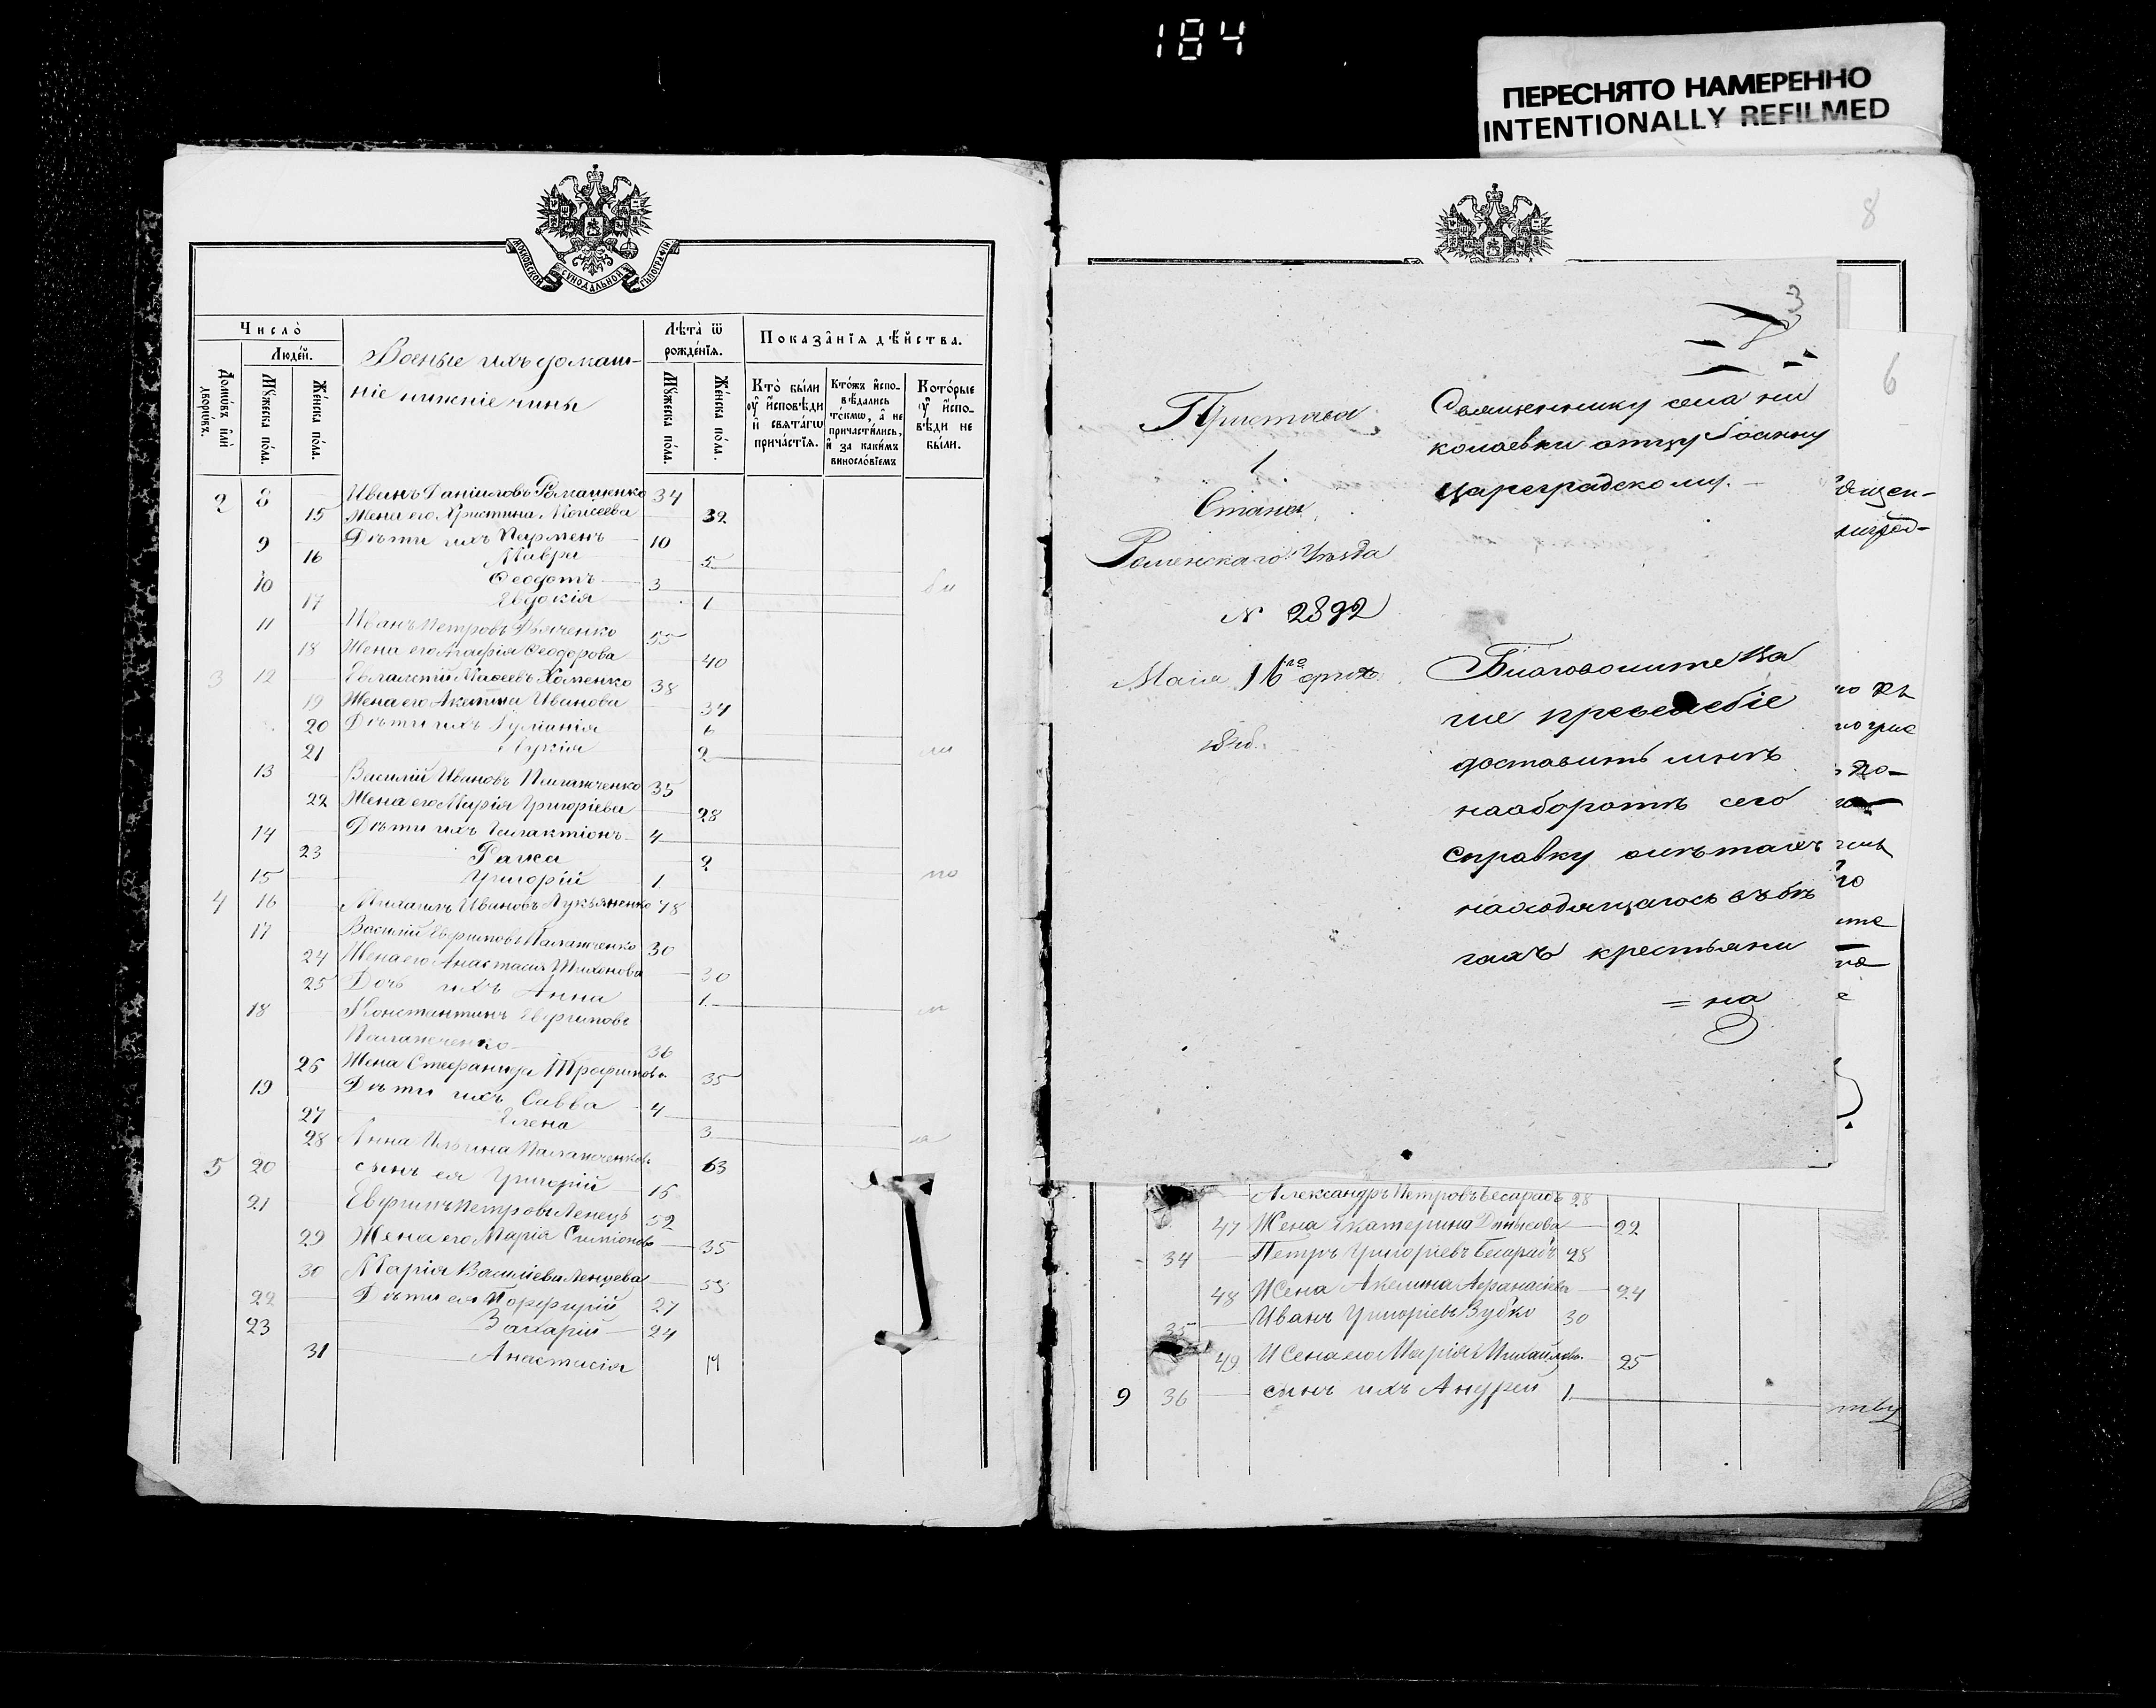 184
ПЕРЕСНЯТО НАМЕРЕННО
INTENTIONALLY REFILMED
МОСКОВСКОЙ СѴНОДАЛЬНОЙ ТИПОГРАФІИ
Число̀
Люде́й.
Домѡ́въ и҆лѝ дворѡ́въ.
Мꙋ́жеска по́ла.
Же́нска по́ла.
Военые ихъ домаш-
ніе нижніе чины
Лѣта̀ ѿ рожде́нїѧ.
Мꙋ́жеска по́ла.
Же́нска по́ла.
Показа̑нїѧ дѣ́йства.
Кто̀ бы́ли ᲂу҆ и҆сповѣ́ди и҆ свѧта́гѡ прича́стїѧ.
Кто́жъ и҆спо-вѣ́дались то́кмѡ, а҆ не причасти́лись, и҆ за каки́мъ виносло́вїемъ
Кото́рые ᲂу҆ и҆спо-вѣ́ди не бы́ли.
2 8 Иванъ Даніиловъ Ромащенко 34
15 Жена его Христина Моисеева 32
9 Дѣти ихъ Парменъ 10
16 Мавра 5
10 Ѳеодотъ 3
17 Евдокія 1
11 Иванъ Петровъ Дьяченко 55
18 Жена его Агафія Ѳеодорова 40
3 12 Хоменко 38
19 Жена его Акилина Иванова 34
20 Дѣти ихъ Іуліанія 6
21 Лукія 2
13 Василій Ивановъ Паламченко 35
22 Жена его Марія Григоріева 28
14 Дѣти ихъ Галактіонъ 4
23 Раиса 2
15 Григорій 1
4 16 Михаилъ Ивановъ Лукьяненко 48
17 Василій Евфимовъ Паламченко 30
24 Жена его Анастасія Тихонова 30
25 Дочь ихъ Анна 1
18 Константинъ Евфимовъ
Паламченко 36
26 Жена Стефанида Трофимова 35
19 Дѣти ихъ Савва 4
27 Елена 3
28 Анна Ильина Паламченкова 63
5 20 сынъ ея Григорій 16
21 Евфимъ Петровъ Ленецъ 52
29 Жена его Марія Симіонова 35
30 Марія Василіева Ленцева 53
22 Дѣти ея Порфирій 27
23 Захарій 24
31 Анастасія 19
8
3
6
Пристава
1
Стана
Роменскаго Уѣзда
№ 2892
Маія 16го дня
Священнику села Ни
колаевки отцу Іоанну
Цареградскому.
Благоволите Ва
ше
доставить мнѣ
наоборотѣ сего
справку олѣтахъ
находящагося въ бѣ
гахъ крестьяни
= на
Александръ Петровъ Бесарабъ 28
47 Жена Екатерина Данилова 22
34 Петръ Григоріевъ Бесарабъ 28
48 Жена Акилина Афанасіева 24
35 Иванъ Григоріевъ Зубко 30
49 Жена его Марія Михайлова 25
9 36 сынъ ихъ Андрей 1